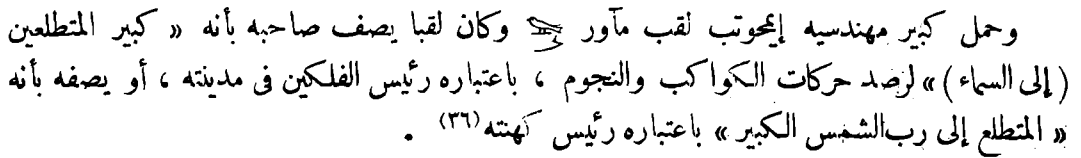 وحمل كبير مهندسيه إيمحوتب لقب مآور وكان لقبا يصف صاحبه بأنه « كبير المتطلعين
( إلى السماء ) » لرصد حركات الكواكب والنجوم ، باعتباره رئيس الفلكين فى مدينته ، أو يصفه بأنه
« المتطلع إلى رب الشمس الكبير » باعتباره رئيس كهنته (٣٦) .